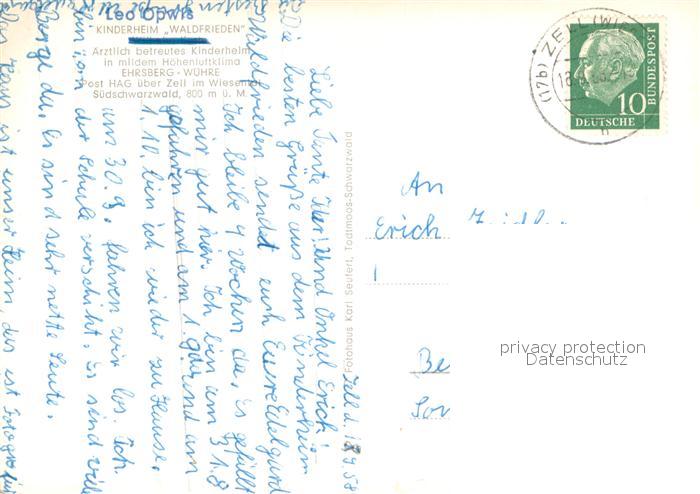 Leo Opwis
KINDERHEIM „WALDFRIEDEN"
Ärztlich betreutes Kinderheim
in mildem Höhenluftklima
EHRSBERG - WÜHRE
Post HAG über Zell im Wiesental
Südschwarzwald, 800 m ü. M.
Zell d. 18.9.58
Liebe Tante Käte! Und Onkel Erich!
Die besten Grüße aus dem Kinderheim
Waldfrieden sendet euch Eure Edelgard
Ich bleibe 4 Wochen da. Es gefällt
mir gut hier. Ich bin am 31.8
gefahren und am 1.9 da und am
1.10. bin ich wieder zu Hause.
am 30.9. fahren wir los. Ich
bin von der Schule verschikt. Es sind viele
Berge da. Es sind sehr nette Leute.
Das Haus ist unser Heim, das ist
Fotohaus Karl Seufert, Todtmoos-Schwarzwald
(17b) ZELL (WIES
10
DEUTSCHE
BUNDESPOST
An
Erich
Be
privacy protection
Datenschutz